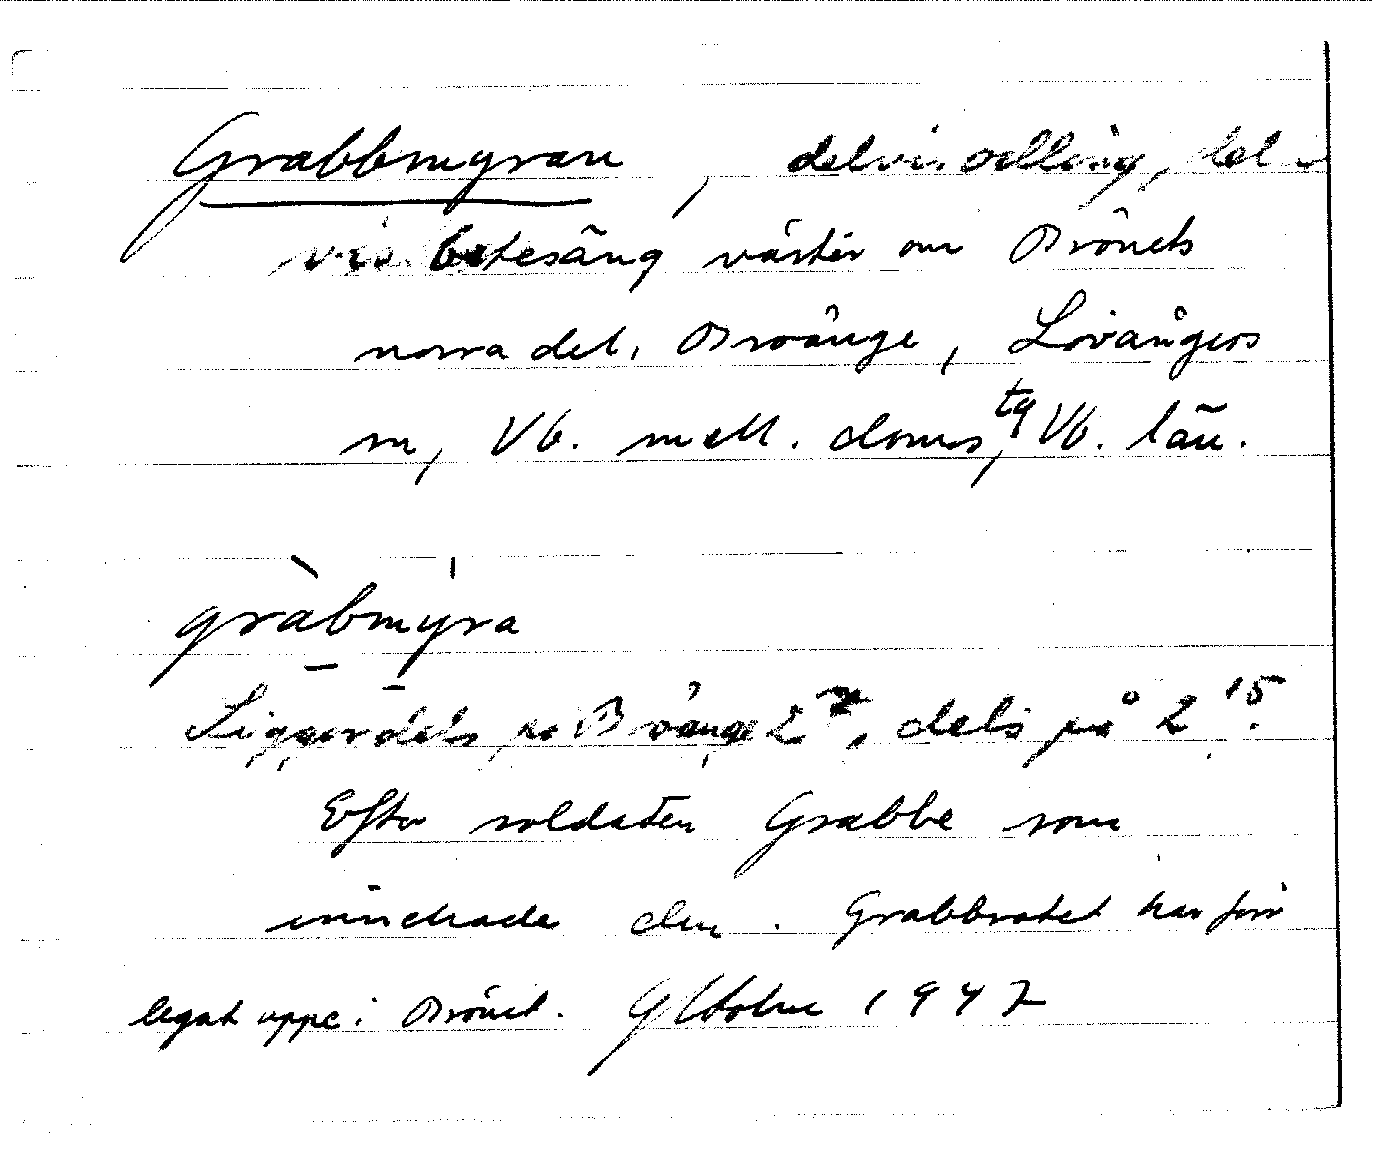 Grabbmyran, delvis odling, del-
vis betesäng väster om Brönets
norra del. Bvänge, Lövångers
sn, Vb. mell. doms, tg Vb. län.
gràbmýra
Ligger dels på Bvänge 2, dels på 2 15.
Efter soldaten Grabbe som
innehade den. Grabbrotet har förr
legat uppe i Brönet. G Holm 1947